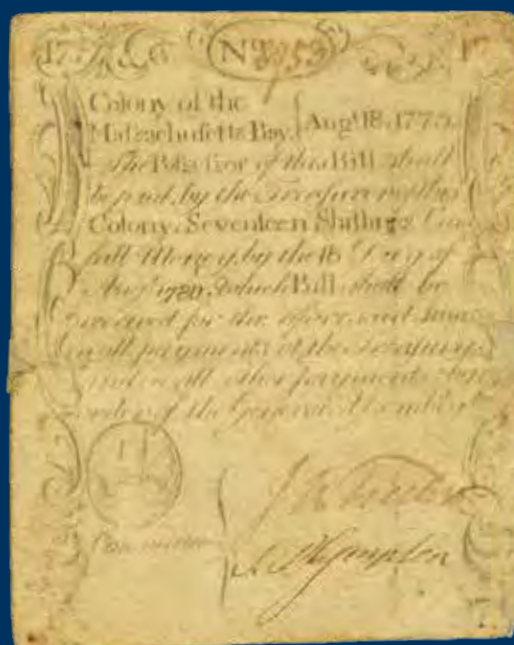 No 8953
Colony of the
Massachusetts Bay. Augt. 18. 1775.
The Possessor of this Bill shall
be paid, by the Treasurer of this
Colony, Seventeen Shillings
full Money, by the 18 Day of
Augt. 1780, which Bill shall be
received for the aforesaid Sum
in all payments at the Treasury,
and in all other payments by
order of the General Assembly.
Committee